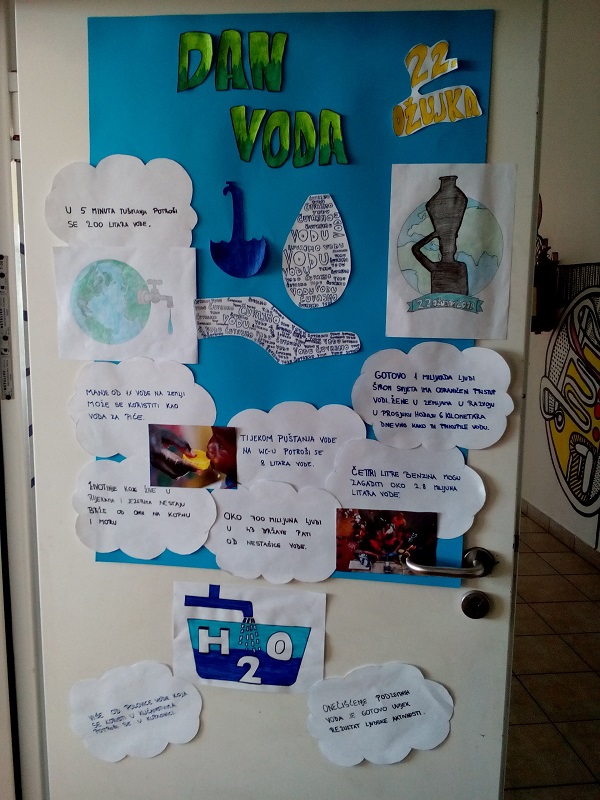 DAN
VODA
22.
OŽUJKA
U 5 MINUTA TUŠIRANJA POTROŠI
SE 200 LITARA VODE.
ČUVAJMO
VODU
22. OŽUJKA
MANJE OD 1% VODE NA ZEMLJI
MOŽE SE KORISTITI KAO
VODA ZA PIĆE.
GOTOVO 1 MILIJARDA LJUDI
ŠIROM SVIJETA IMA OGRANIČEN PRISTUP
VODI. ŽENE U ZEMLJAMA U RAZVOJU
U PROSJEKU HODAJU 6 KILOMETARA
DNEVNO KAKO BI PRIKUPILE VODU.
TIJEKOM PUŠTANJA VODE
NA WC-U POTROŠI SE
8 LITARA VODE.
ČETIRI LITRE BENZINA MOGU
ZAGADITI OKO 2.8 MILIJUNA
LITARA VODE.
ŽIVOTINJE KOJE ŽIVE U
RIJEKAMA I JEZERIMA NESTAJU
BRŽE OD ONIH NA KOPNU
I MORU
OKO 700 MILIJUNA LJUDI
U 43 DRŽAVE PATI
OD NESTAŠICE VODE.
H2O
VIŠE OD POLOVICE VODE KOJA
SE KORISTI U KUĆANSTVIMA
POTROŠI SE U KUPAONICI.
ONEČIŠĆENJE PODZEMNIH
VODA JE GOTOVO UVIJEK
REZULTAT LJUDSKE AKTIVNOSTI.